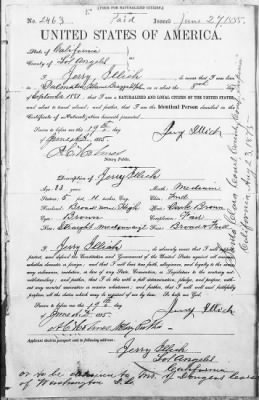 [FORM FOR NATURALIZED CITIZEN.]
No. 2463 Paid Issued June 27, 1885.
UNITED STATES OF AMERICA.
State of California
County of Los Angeles
I, Jerry Illich, do swear that I was born
in Dalmatia, on or about the day
of September 1851; that I am a NATURALIZED AND LOYAL CITIZEN OF THE UNITED STATES,
and about to travel abroad; and further, that I am the Identical Person described in the
Certificate of Naturalization herewith presented.
Sworn to before me this 19th day
of June A.D. 1885.
Jerry Illich
A C Holmes
Notary Public.
Description of Jerry Illich
Age 33 years Mouth Medium
Stature 5 feet 11 inches, Eng. Chin
Forehead High Hair Dark Brown
Eyes Brown Complexion Fair
Nose Straight Face
I, Jerry Illich, do solemnly swear that I will support,
protect, and defend the Constitution and Government of the United States against all enemies,
whether domestic or foreign; and that I will bear true faith, allegiance, and loyalty to the same,
any ordinance, resolution, or law of any State, Convention, or Legislature to the contrary not-
withstanding; and further, that I do this with a full determination, pledge, and purpose, with-
out any mental reservation or evasion whatsoever; and further, that I will well and faithfully
perform all the duties which may be required of me by law. So help me God.
Sworn to before me this 19th day
of June A.D. 1885.
Jerry Illich
A C Holmes Notary Public
Applicant desires passport sent to following address:
Jerry Illich
Los Angeles
California
or to be
of Washington D.C.
California Aug 23